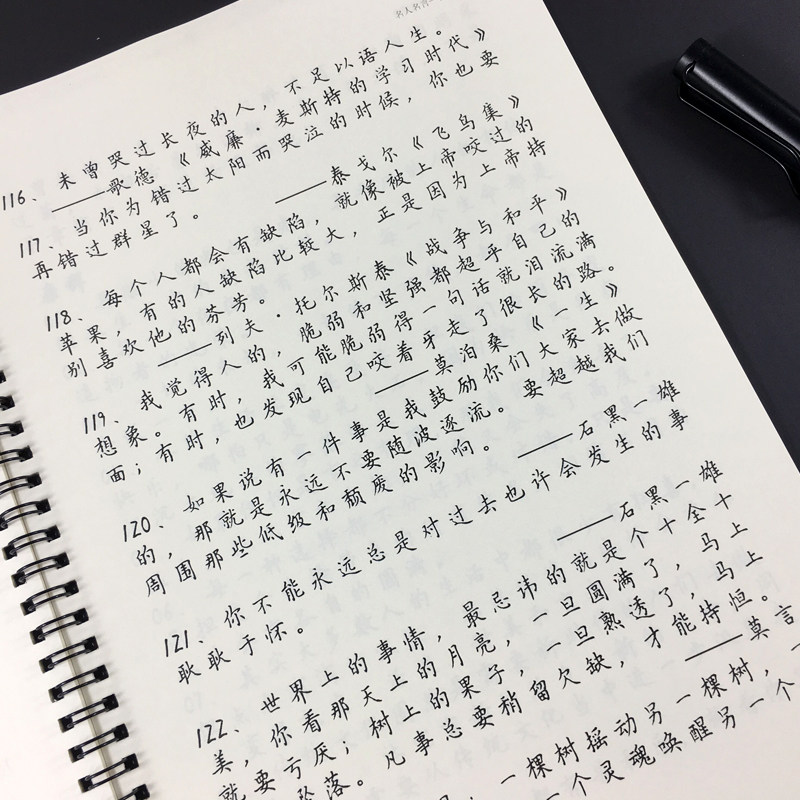 名人名言
116、未曾哭过长夜的人，不足以语人生。
——歌德《威廉·麦斯特的学习时代》
117、当你为错过太阳而哭泣的时候，你也要
再错过群星了。 ——泰戈尔《飞鸟集》
118、每个人都会有缺陷，就像被上帝咬过的
苹果，有的人缺陷比较大，正是因为上帝特
别喜欢他的芬芳。
——列夫·托尔斯泰《战争与和平》
119、我觉得人的，脆弱和坚强都超乎自己的
想象。有时，我可能脆弱得一句话就泪流满
面；有时，也发现自己咬着牙走了很长的路。
——莫泊桑《一生》
120、如果说有一件事是我鼓励你们大家去做
的，那就是永远不要随波逐流。要超越我们
周围那些低级和颓废的影响。 ——石黑一雄
121、你不能永远总是对过去也许会发生的事
耿耿于怀。 ——石黑一雄
122、世界上的事情，最忌讳的就是个十全十
美，你看那天上的月亮，一旦圆满了，马上
就要亏厌；树上的果子，一旦熟透了，马上
坠落。凡事总要稍留欠缺，才能持恒。
——莫言
一棵树摇动另一棵树，一
一个灵魂唤醒另一个